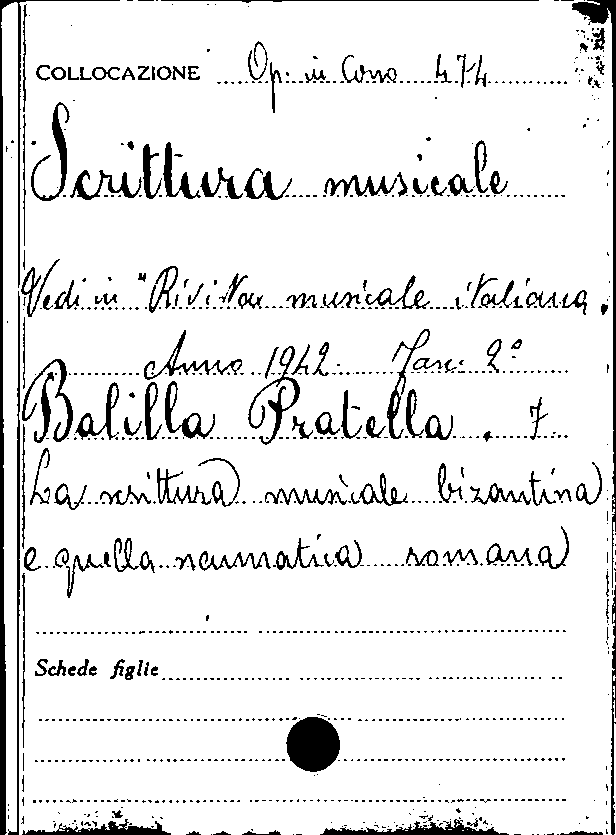 COLLOCAZIONE Op. in Cons 474
Scrittura musicale
Vedi in "Rivista musicale italiana.
Anno 1942. Fasc. 2°
Balilla Pratella. F.
La scrittura musicale bizantina
e quella neumatica romana
Schede figlie